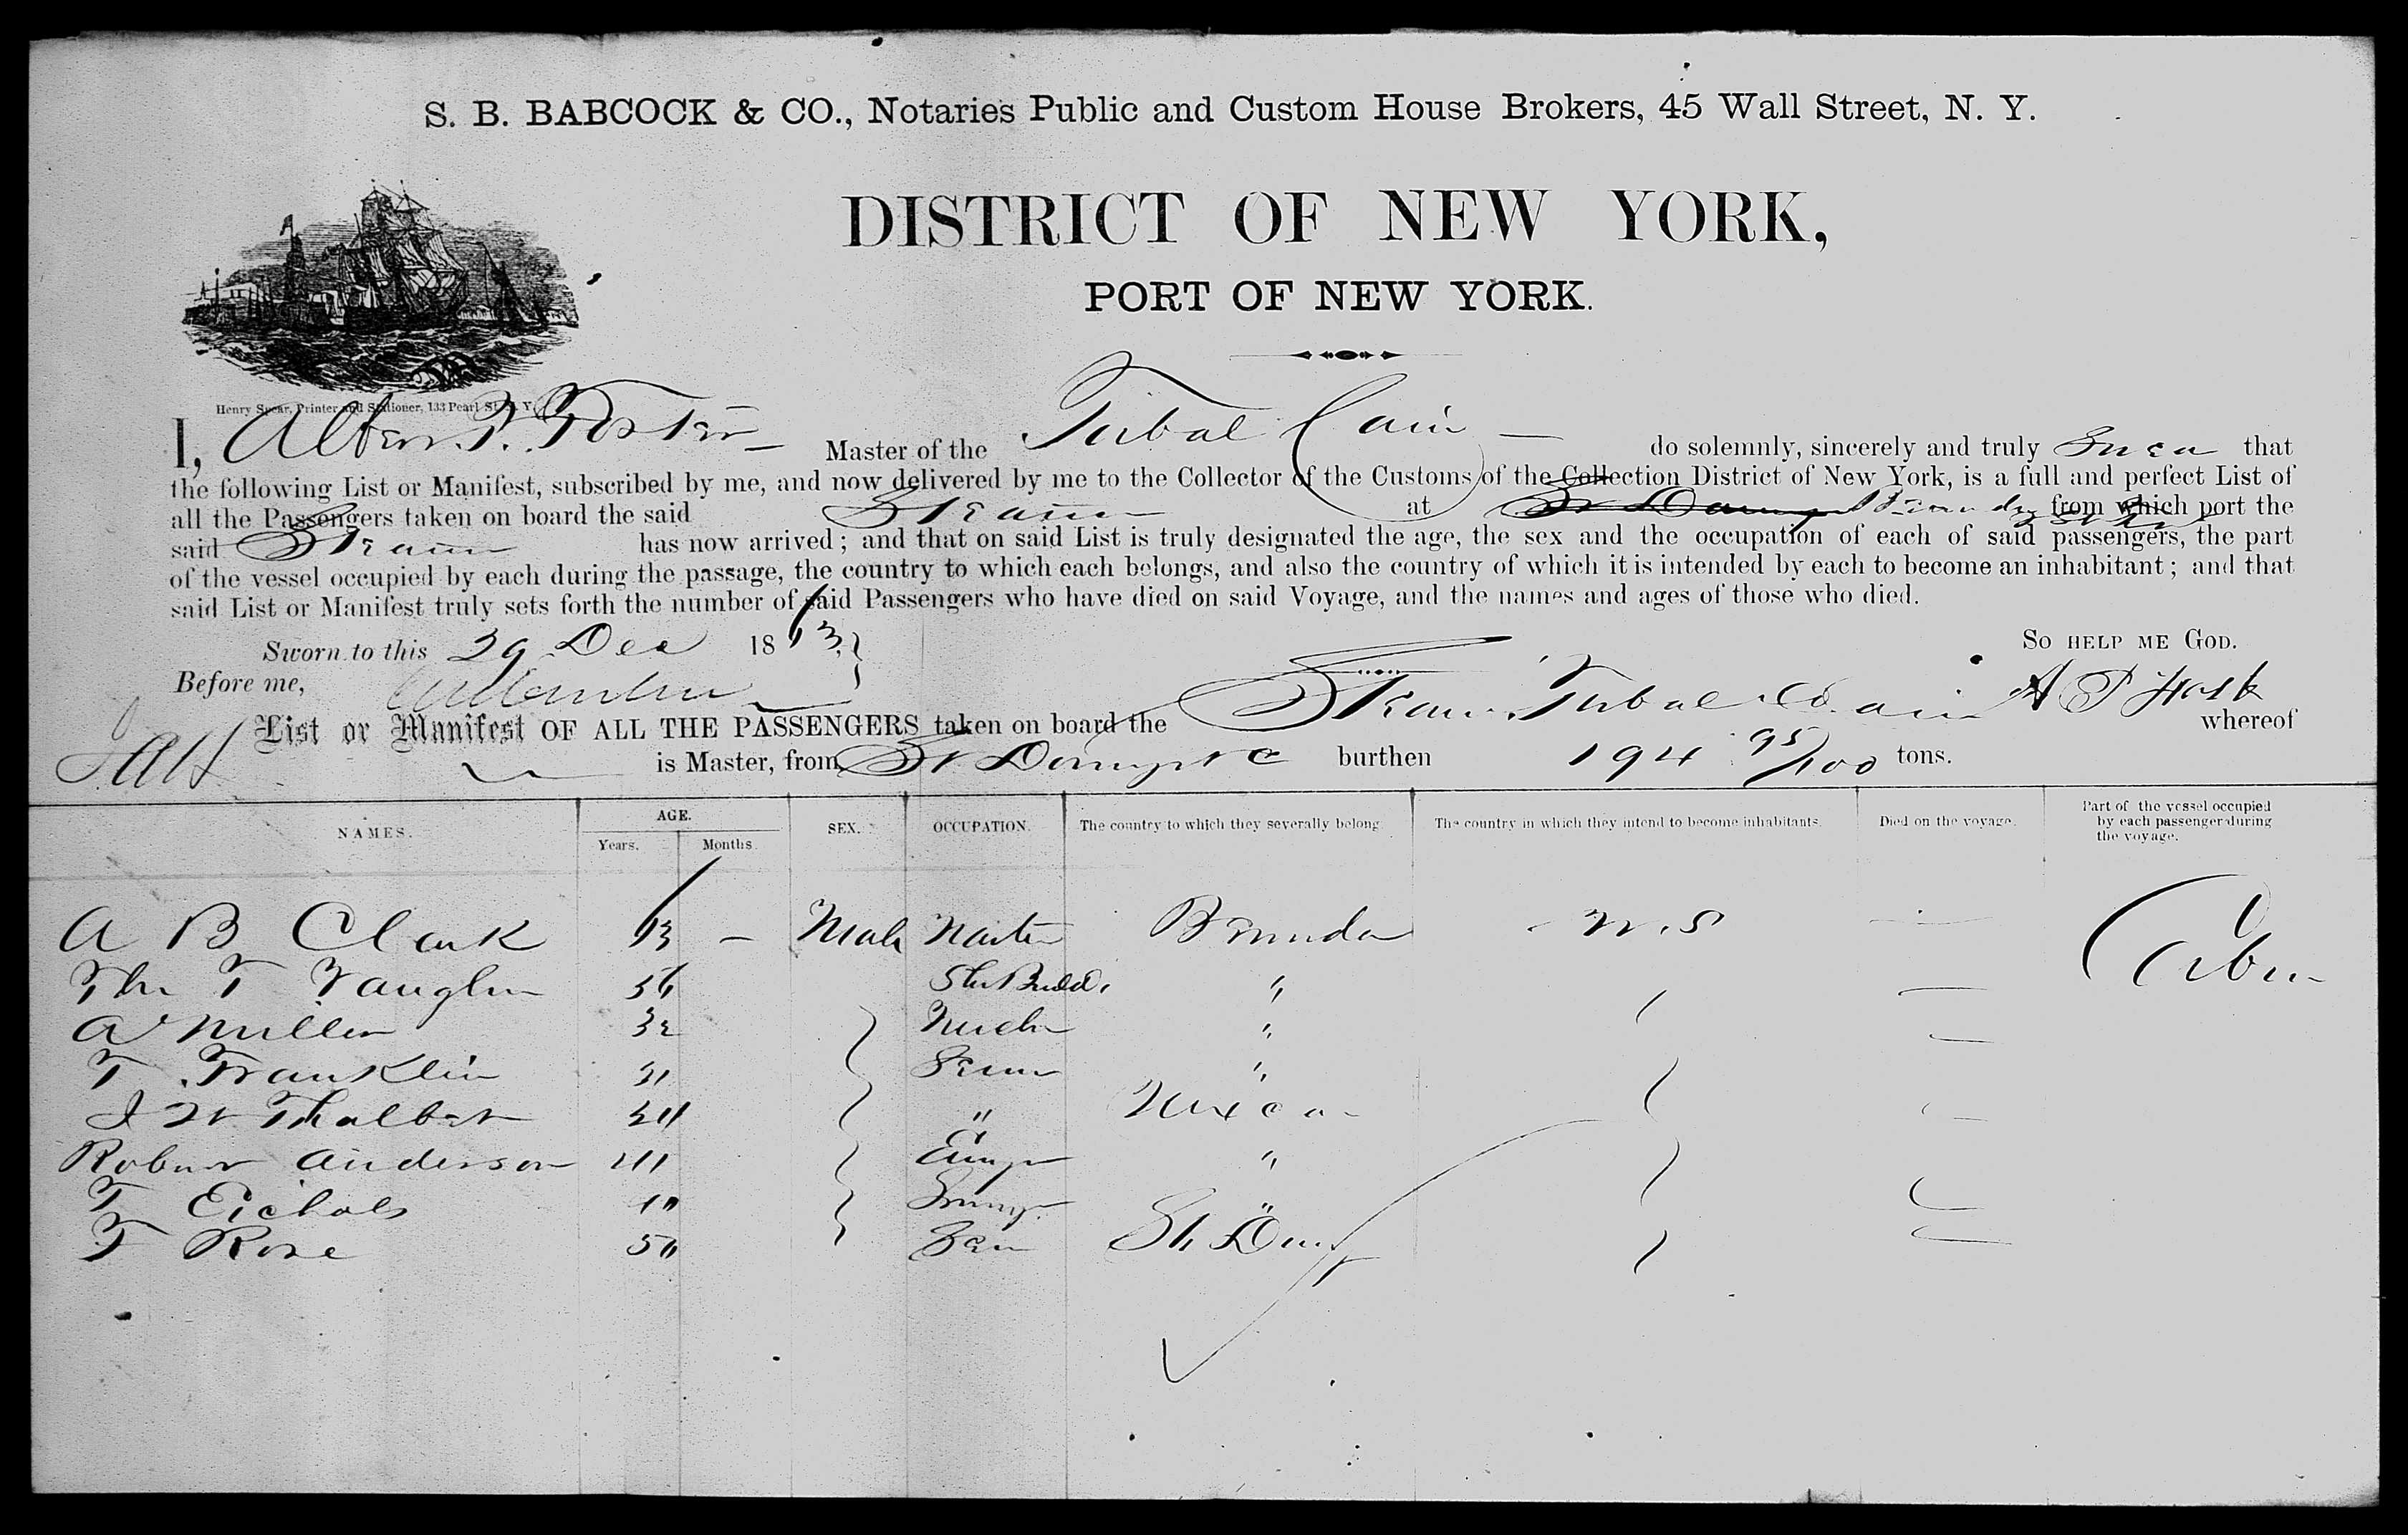 S. B. BABCOCK & CO., Notaries Public and Custom House Brokers, 45 Wall Street, N. Y.
DISTRICT OF NEW YORK,
PORT OF NEW YORK.
Henry Spear, Printer and Stationer, 133 Pearl St. N. Y.
I, Master of the Tubal Cain — do solemnly, sincerely and truly Swear that
the following List or Manifest, subscribed by me, and now delivered by me to the Collector of the Customs of the Collection District of New York, is a full and perfect List of
all the Passengers taken on board the said Steamer at from which port the
said Steamer has now arrived; and that on said List is truly designated the age, the sex and the occupation of each of said passengers, the part
of the vessel occupied by each during the passage, the country to which each belongs, and also the country of which it is intended by each to become an inhabitant; and that
said List or Manifest truly sets forth the number of said Passengers who have died on said Voyage, and the names and ages of those who died.
Sworn to this 29 Dec 18 3 SO HELP ME GOD.
Before me,
List or Manifest OF ALL THE PASSENGERS taken on board the Steam. Tubal Cain whereof
is Master, from St Domingo burthen 194 95/100 tons.
NAMES. AGE. Years. Months. SEX. OCCUPATION. The country to which they severally belong. The country in which they intend to become inhabitants. Died on the voyage. Part of the vessel occupied by each passenger during the voyage.
A B Clark — Male Bermuda Cabin
T Vaughn 〃
A Miller 32 〃
T. Franklin 31 〃
〃
Robert Anderson 〃
T Eichols 〃
T Rose